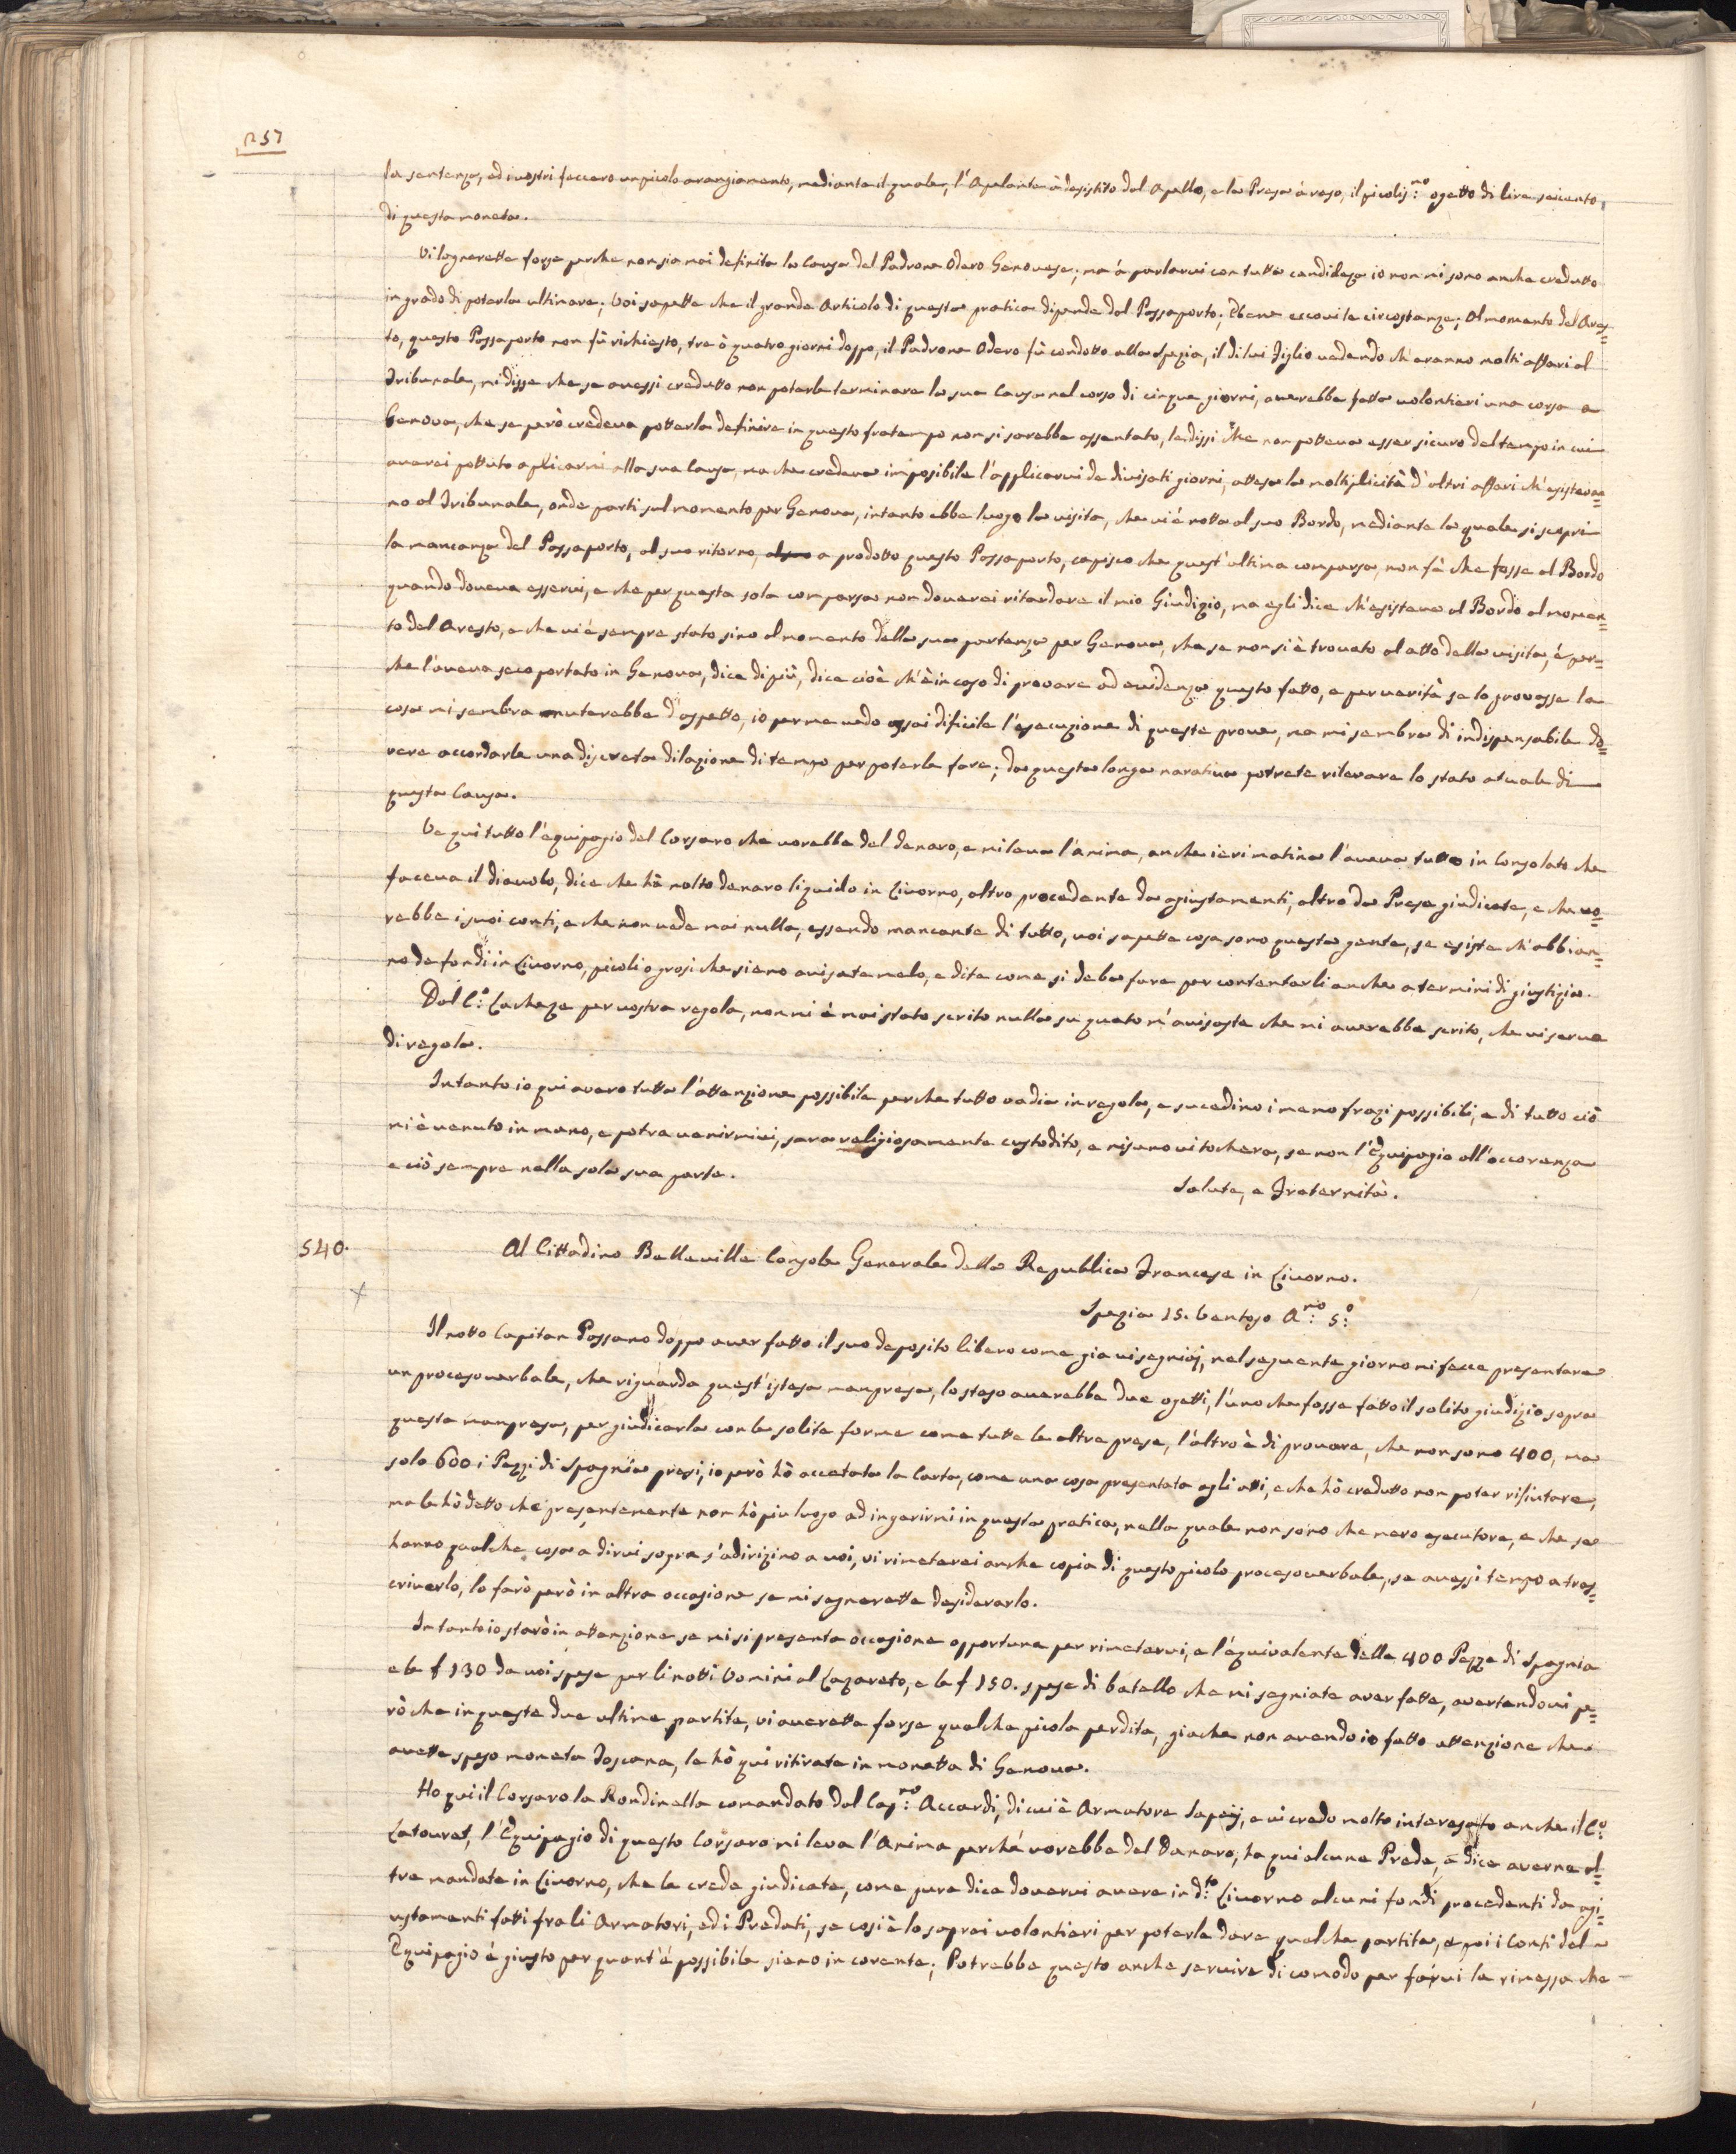 257
la sentenza, ed i nostri feccero un picolo arangiamento, mediante il quale, l'Apelante à desistito dal Apello, e la Presa à reso, il picolis:mo ogetto di lire seicento
di questa moneta.
Vi lagnerette forse perche non sia mai definita la Causa del Padrone Odero Genovese; ma á parlarvi con tutta candidesa io non mi sono anche credutto
in grado di poterla ultimare; Voi sapette che il grande Articolo di questa pratica dipende dal Passaporto; Ebene eccovi le circostanze; Al momento del Ares=
to, questo Passaporto non fù richiesto, tre ò quatro giorni doppo, il Padrone Odero fù condotto alla Spezia, il di lui Figlio vedendo ch'eranno molti affari al
Tribunale, mi disse che se avessi credutto non poterle terminare la sua Causa nel corso di cinque giorni, averebbe fatto volontieri una corsa a
Genova, che se però credeva potterla definire in questo fratempo non si sarebbe assentato, le dissi che non potteva esser sicuro del tempo in cui
averei pottuto aplicarmi alla sua Causa, ma che credeva imposibile l'applicarvi da divisati giorni, attesa la moltiplicità d'altri affari ch'esisteva=
no al Tribunale, onde partì sul momento per Genova, intanto ebbe luogo la visita, che vi é notta al suo Bordo, mediante la quale si scoprì
la mancanza del Passaporto, al suo ritorno, a prodotto questo Passaporto, capisco che quest'ultima comparsa, non fà che fosse al Bordo
quando doveva esservi, e che per questa sola comparsa non doverei ritardare il mio Giudizio, ma egli dice ch'esisteva al Bordo al momen=
to del Aresto, e che vi é sempre stato sino al momento della sua partenza per Genova, che se non si è trovato al atto della visita, é per=
che l'aveva seco portato in Genova, dice di più, dice cioè ch'è in caso di provare ad evidenza questo fatto, e per verità se lo provasse la
cosa mi sembra muterebbe d'aspetto, io per me vedo assai dificile l'esecuzione di queste prove, ma mi sembra di indispensabile do=
vere accordarle una discreta dilazione di tempo per poterle fare; da questa longa narativa potrete rilevare lo stato atuale di
questa Causa.
Ve qui tutto l'equipagio del Corsaro che vorebbe del denaro, e mi leva l'anima, anche ieri matina l'aveva tutto in Consolato che
faceva il diavolo, dice che hà molto denaro liquido in Livorno, altro procedente da agiustamenti, altro da Prese giudicate, e che vo=
rebbe i suoi conti, e che non vede mai nulla, essendo mancante di tutto, voi sapette cosa sono questa gente, se esiste ch'abbian=
no de fondi in Livorno, picoli o grosi che siano avisatemelo, e dite come si deba fare per contentarli anche a termini di giustizia.
Dal C:o Lacheze per vostra regola, non mi è mai stato scrito nulla su quato m'avisaste che mi averebbe scrito, che vi serva
di regola.
Intanto io qui avero tutta l'attenzione possibile perche tutto vadia in regola, e sucedino i meno frazi possibili, e di tutto ciò
mi è venuto in mano, e potra venirmivi, sara religiosamente custodito, e nisuno vi tochera, se non l'Equipagio all'occorenza
e ciò sempre nella sola sua parte.
Salute, e Fraternità.
540.
Al Cittadino Belleville Console Generale della Republica Francese in Livorno.
Spezia 15. Ventoso A:no 5:o
Il notto Capitan Possano doppo aver fatto il suo deposito libero come gia vi segniai, nel seguente giorno mi fecce presentare
un proceso verbale, che riguarda quest'istesa manpresa, lo steso averebbe due ogetti, l'uno che fosse fatto il solito giudizio sopra
questa manpresa, per giudicarla con le solite forme come tutte le altre prese, l'altro è di provare, che non sono 400, ma
solo 600 i Pezzi di Spagnia presi, io però hò accetata la Carta, come una cosa presentata agli atti, e che hò credutto non poter rifiutare,
ma le hò detto che presentemente non hò piu luogo ad ingerirmi in questa pratica, nella quale non sono che mero esecutore, e che se
hanno qualche cosa a dirvi sopra s'adirizino a voi, vi rimeterei anche copia di questo picolo proceso verbale, se avessi tempo a tras=
criverlo, lo farò però in altra occasione se mi segnerette desiderarlo.
Intanto io starò in attenzione se mi si presenta occasione opportuna per rimetervi, e l'equivalente delle 400 Pezze di Spagnia
e le f 130 da voi spese per li notti Uomini al Lazareto, e le f 150. spese di batello che mi segniate aver fatte, avertendovi pe=
rò che in queste due ultime partite, vi averette forse qualche picola perdita, giache non avendo io fatto attenzione che
avette speso moneta Toscana, le hò qui ritirate in monetta di Genova.
Ho qui il Corsaro la Rondinella comandato dal Cap:no Accardi, di cui è Armatore Sapey, e vi credo molto interesato anche il C:o
Latouret, l'Equipagio di questo Corsaro mi leva l'Anima perché vorebbe del Danaro, ha qui alcune Prede, e dice averne al=
tre mandate in Livorno, che le crede giudicate, come pure dice dovervi avere in d:to Livorno alcuni fondi procedenti da agi=
ustamenti fatti fra li Armatori, ed i Predati, se cosi è lo saprei volontieri per poterle dare qualche partita, e poi i Conti del
Equipagio é giusto per quant'é possibile siano in corente; Potrebbe questo anche servire di comodo per farvi la rimessa che